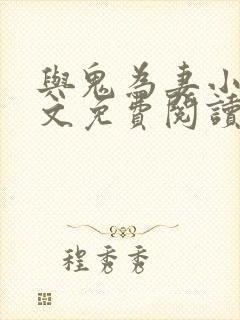 與鬼為妻小
文免費閱讀
程秀秀